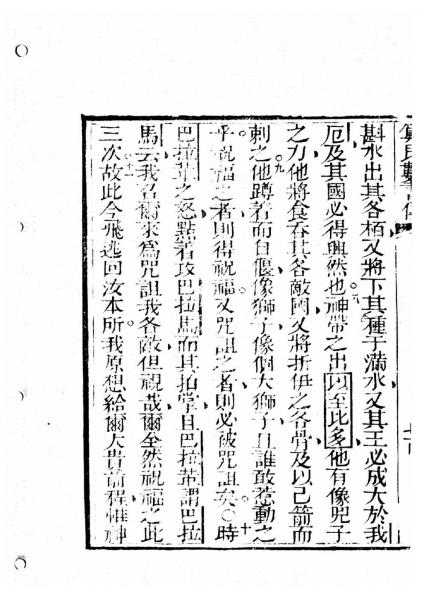 斟水出其各栢又將下其種于滿水又其王必成大於我
厄及其國必得興然也。八神帶之出以至比多他有像兕子
之力他將食吞其各敵國又將折伍之各骨及以己箭而
刺之。九他蹲着而自偃像獅子像個大獅子且誰敢惹動之
乎祝福之者則得祝福又咒詛之者則必被咒詛矣。〇十時
巴拉革之怒點着攻巴拉馬而其拍掌且巴拉革謂巴拉
馬云我召爾來為咒詛我各敵但視哉爾全然祝福之此
三次。十一故此今飛逃回汝本所我原想給爾大貴前程惟神